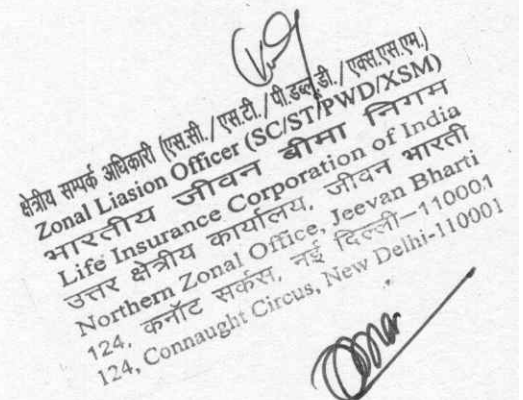 क्षेत्रीय सम्पर्क अधिकारी (एस.सी./एस.टी./पी.डब्लू.डी./एक्स.एस.एम.)
Zonal Liasion Officer (SC/ST/PWD/XSM)
भारतीय जीवन बीमा निगम
Life Insurance Corporation of India
उत्तर क्षेत्रीय कार्यालय, जीवन भारती
Northern Zonal Office, Jeevan Bharti
124, कनॉट सर्कस, नई दिल्ली–110001
124, Connaught Circus, New Delhi-110001